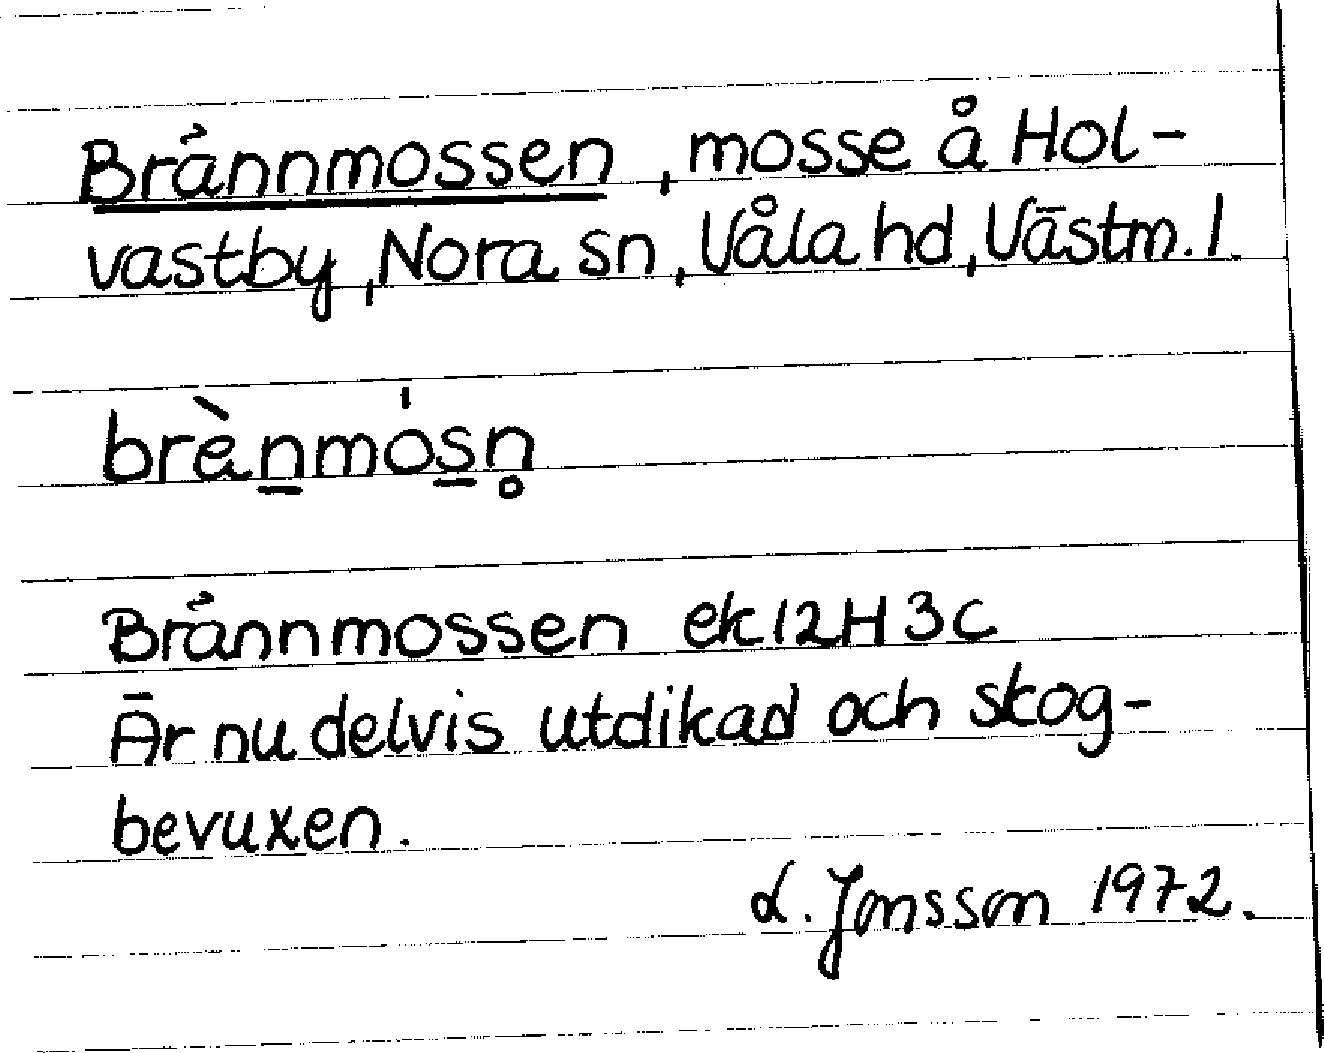 Brännmossen, mosse å Hol-
vastby, Nora sn, Våla hd, Västm. l.
brènmósn̥
Brännmossen ek 12H 3c
Är nu delvis utdikad och skog-
bevuxen.
L. Jonsson 1972.